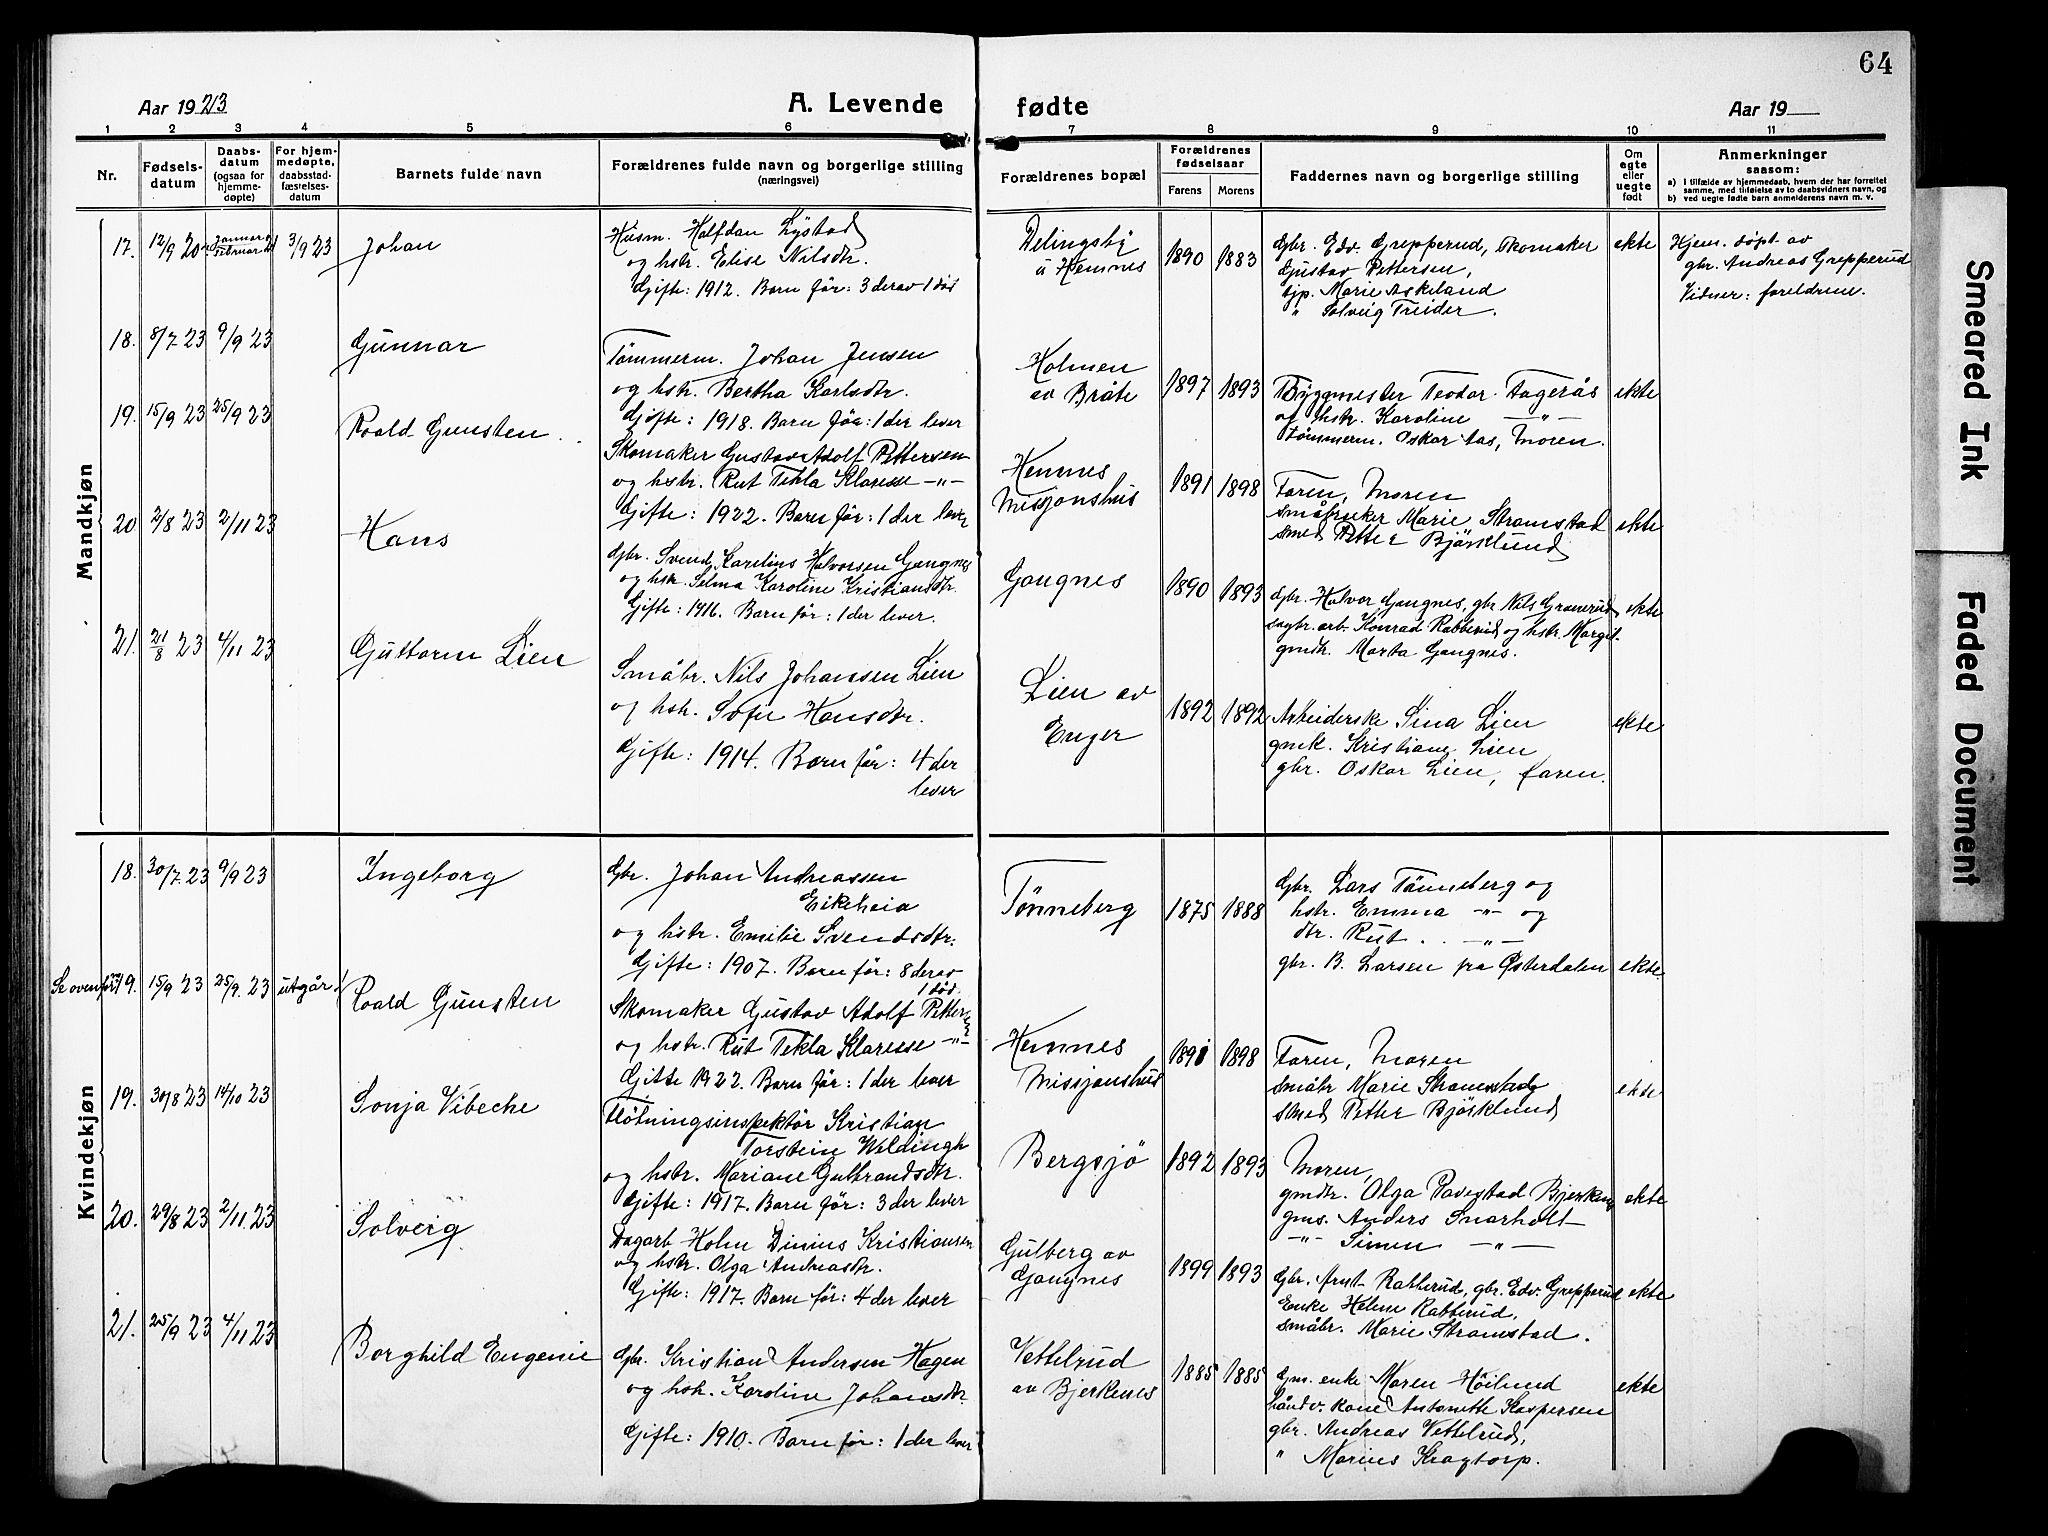 64
Aar 1923
A. Levende
fødte
Aar 19
1 2 3 4 5 6 7 8 9 10 11
Nr.
Fødsels-
datum
Daabs-
datum
(ogsaa for
hjemme-
døpte)
For hjem-
medøpte,
daabsstad-
fæstelses-
datum
Barnets fulde navn
Forældrenes fulde navn og borgerlige stilling
(næringsvei)
Forældrenes bopæl
Forældrenes
fødselsaar
Farens
Morens
Faddernes navn og borgerlige stilling
Om
egte
eller
uegte
født
Anmerkninger
saasom:
a) I tilfælde av hjemmedaab, hvem der har forrettet
samme, med tilføielse av to daabsvidners navn, og
b) ved uegte fødte barn anmelderens navn m. v.
Mandkjøn
17. 12/9 20 Januar Februar 21 3/9 23 Johan
Husm. Halfdan Lystad
og hstr. Elise Nilsdtr.
Gifte: 1912. Barn før: 3 derav 1 død
Delingsby
u Hemnes
1890 1883
Gbr. Edv. Grepperud, skomaker
Gustav Pettersen,
tjp. Marie Askeland
" Solveig Treider.
ekte
Hjem. døpt av
gbr. Andreas Grepperud
Vidner: foreldrene.
18. 8/7 23 9/9 23 Gunnar
Tømmerm. Johan Jensen
og hstr. Bertha Karlsdtr.
Gifte: 1918. Barn før: 1 der lever
Holmen
av Bråte
1897 1893
Byggmester Teodor Fagerås
og hstr. Karoline —"—
tømmerm. Oskar Aas, moren.
ekte
19. 15/9 23 25/9 23 Roald Gunsten
Skomaker Gustav Adolf Pettersen
og hstr. Rut Tekla Klaresse —"—
Gifte: 1922. Barn før: 1 der lever
Hemnes
Missjonshus
1891 1898
Faren, moren
småbruker Marie Stramstad
smed Petter Bjørklund
ekte
20 2/8 23 2/11 23 Hans
Gbr. Svend Karelius Halvorsen Gangnes
og hstr. Selma Karoline Kristiansdtr.
Gifte: 1916. Barn før: 1 der lever.
Gangnes
1890 1893
Gbr. Halvor Gangnes, gbr. Nils Granerud
sagbr. arb. Konrad Rabberud og hstr. Margit
gmdtr. Marta Gangnes.
ekte
21. 21/8 23 4/11 23 Guttorm Lien
Småbr. Nils Johansen Lien
og hstr. Sofie Hansdtr.
Gifte: 1914. Barn før: 4 der
lever
Lien av
Enger
1892 1892
Arbeiderske Sina Lien
gmk. Kristiane Lien
gbr. Oskar Lien, faren.
ekte
Kvindekjøn
18. 30/7 23 9/9 23 Ingeborg
Gbr. Johan Andreassen
Eikeheia
og hstr. Emilie Svendsdtr.
Gifte: 1907. Barn før: 8 derav
1 død.
Tønneberg
1875 1888
Gbr. Lars Tønneberg og
hstr. Emma —"— og
dtr. Rut —"—
gbr. B. Larsen fra Østerdalen
ekte
Se ovenfor! 19. 15/9 23 25/9. 23 utgår! Roald Gunsten
Skomaker Gustav Adolf Pettersen
og hstr. Rut Tekla Klaresse —"—
Gifte 1922. Barn før: 1 der lever
Hemnes
Missjonshus
1891 1898
Faren, moren
småbr Marie Stramstad
smed Petter Bjørklund
ekte
19. 30/8 23 14/10 23 Sonja Vibeche
Fløtningsinspektør Kristian
Torstein Weldingh
og hstr. Mariane Gulbrandsdtr.
Gifte: 1917. Barn før: 3 der lever
Bergsjø
1892 1893
Moren,
gmdtr. Olga Tavestad Bjerknes
gms. Anders Snarholt
—"— Simen —"—
ekte
20. 29/8 23 2/11. 23 Solveig
Dagarb Holm Dinius Kristiansen
og hstr. Olga Andreasdtr.
Gifte: 1917. Barn før: 4 der lever
Gulberg av
Gangnes
1899 1893
Gbr. Arnt Rabberud, gbr. Edv. Grepperud
Enke Helene Rabberud,
småbr. Marie Stramstad.
ekte
21. 25/9 23 4/11 23 Borghild Eugenie
Gbr. Kristian Andersen Hagen
og hstr. Karoline Johansdtr.
Gifte: 1910. Barn før: 1 der lever
Vettelrud
av Bjerkenes
1885 1885
Gm. enke Maren Høilund
håndv. kone Antonette Kaspersen
gbr. Andreas Vettelrud,
" Marius Skogtorp.
ekte
Smeared Ink
Faded Document